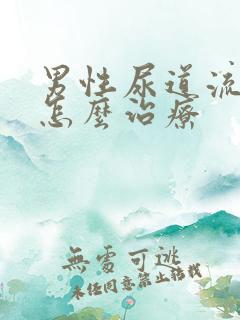 男性尿道流
怎麼治療
無處可逃
未经同意禁止转载